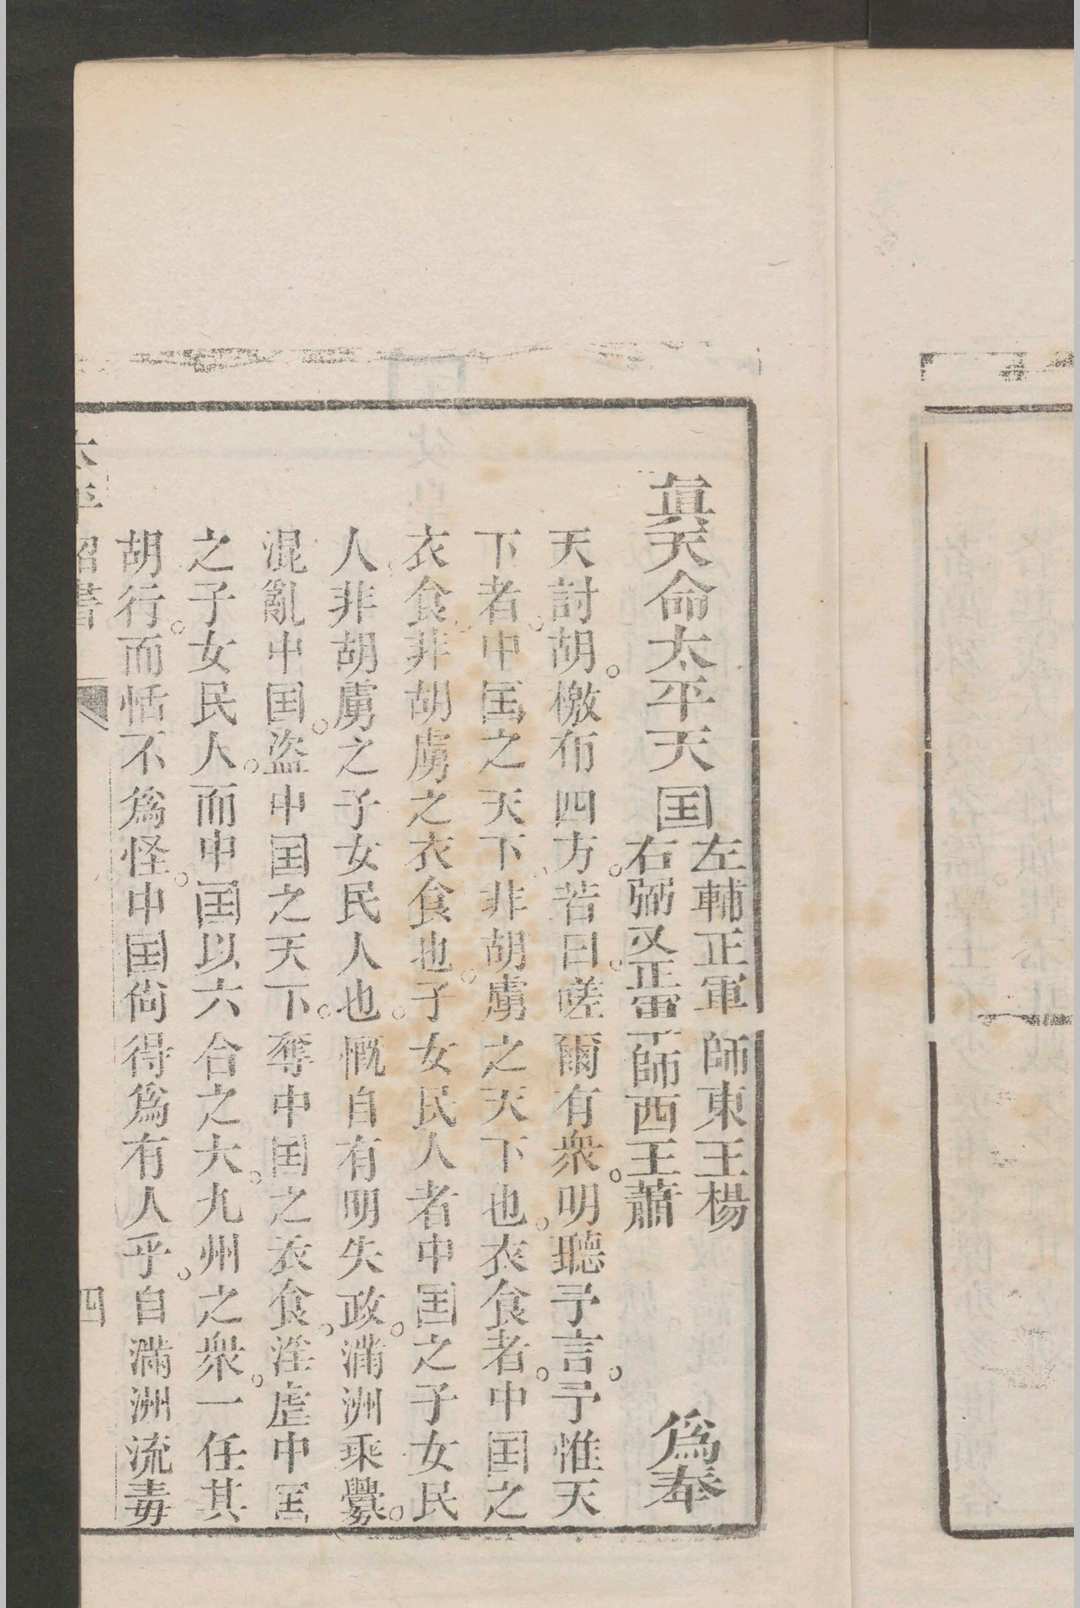 眞天命太平天囯
左輔正軍師東王楊
右弼又正軍師西王蕭
爲奉
天討胡。檄布四方。若曰。嗟爾有衆。明聽予言。予惟天
下者。中囯之天下。非胡虜之天下也。衣食者。中囯之
衣食。非胡虜之衣食也。子女民人者中囯之子女民
人。非胡虜之子女民人也。慨自有明失政。滿洲乘釁。
混亂中囯。盜中囯之天下。奪中囯之衣食。淫虐中囯
之子女民人。而中囯以六合之大。九州之衆。一任其
胡行。而恬不爲怪。中囯尙得爲有人乎。自滿洲流毒
太平詔書
四